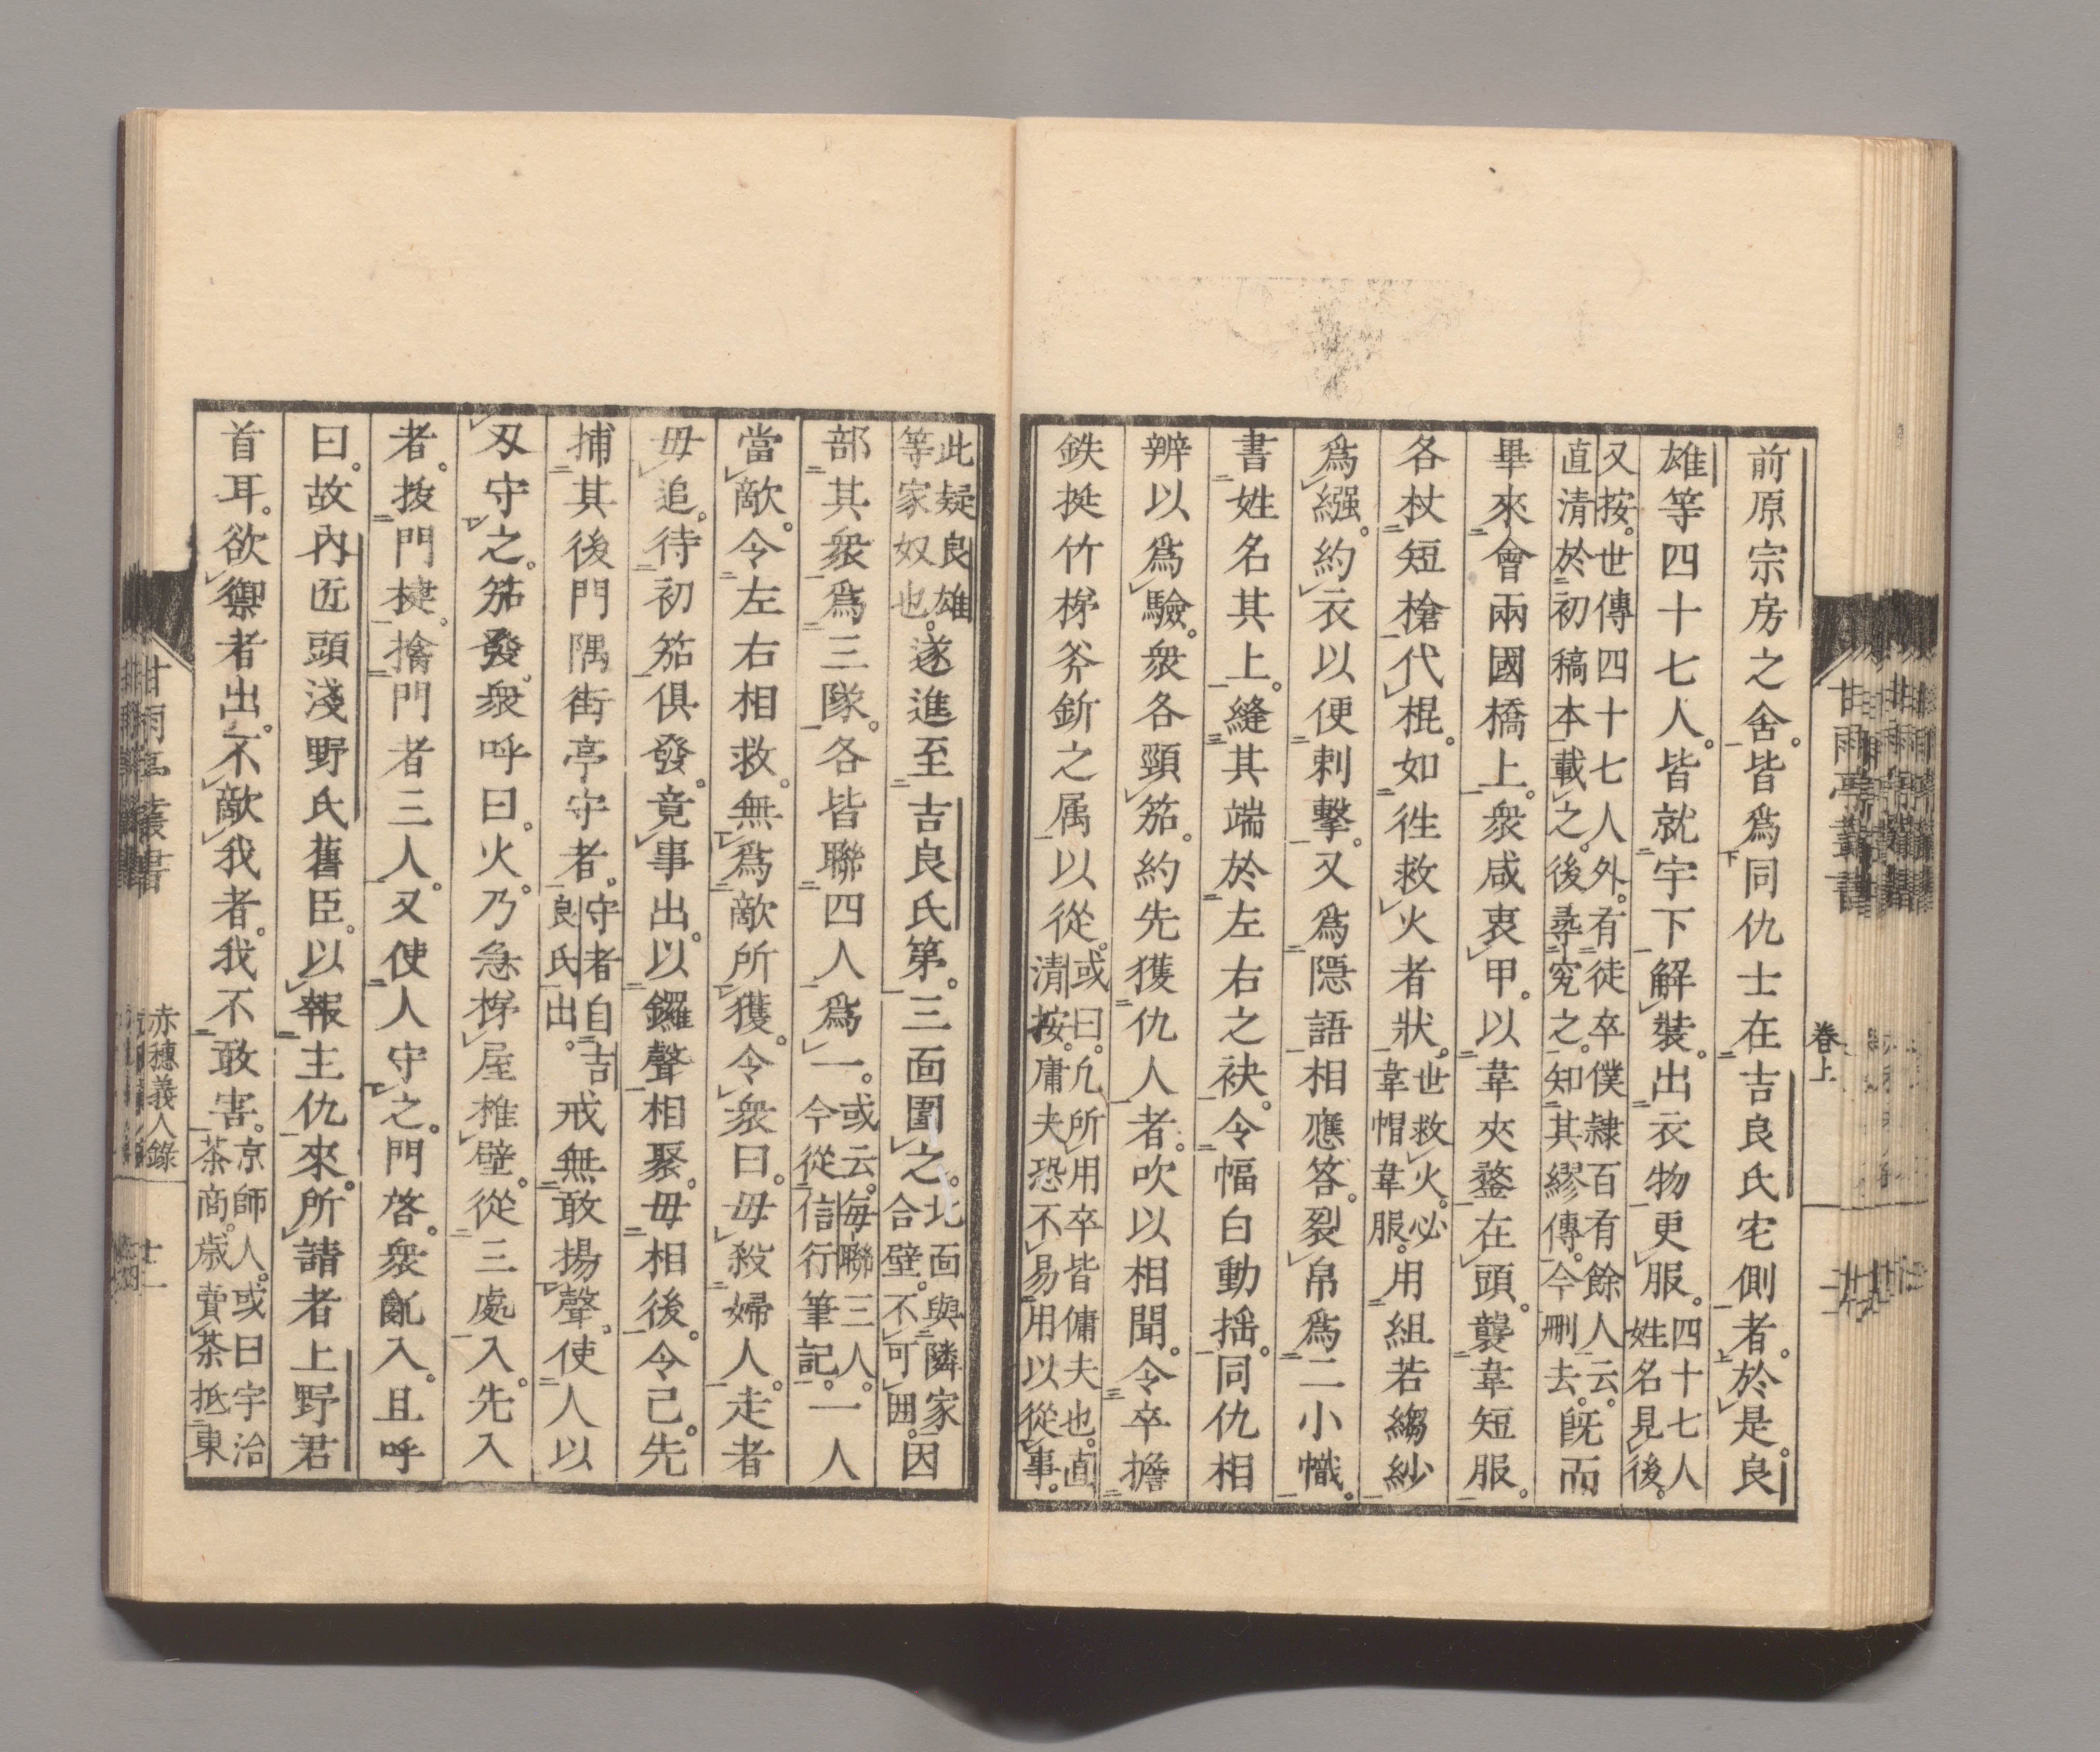 前原宗房之舍。皆爲同仇士在吉良氏宅側者。於是。良
雄等四十七人。皆就宇下解裝。出衣物更服。四十七人姓名見後。
又按。世傳四十七人外。有徒卒僕隷百有餘人云。直清於初稿本載之。後尋究之。知其繆傳。今刪去。既而
畢來會兩國橋上。衆咸衷甲。以韋夾鍪在頭。襲韋短服。
各杖短槍代棍。如徃救火者狀。世救火。必韋帽韋服。用組若縐紗
爲繦。約衣以便刺擊。又爲隠語相應答。裂帛爲二小幟。
書姓名其上。縫其端於左右之袂。令幅白動揺。同仇相
辨以爲驗。衆各頸笳。約先獲仇人者。吹以相聞。令卒擔
鉄梃竹梯斧釿之属以從。或曰。凢所用卒皆傭夫也。直清按。庸夫恐不易用以從事。
卷上
甘雨亭叢書
此疑良雄等家奴也。遂進至吉良氏第。三面圍之。北面與隣家合壁。不可囲。因
部其衆爲三隊。各皆聯四人爲一。或云。每聯三人。今從信行筆記。一人
當敵。令左右相救。無爲敵所獲。令衆曰。毋殺婦人。走者
毋追。待初笳俱發。竟事出。以鑼聲相聚。毋相後。令已。先
捕其後門隅街亭守者。守者自吉良氏出。戒無敢揚聲。使人以
刄守之。笳發。衆呼曰。火。乃急梯屋椎壁。從三處入。先入
者。拔門楗。擒門者三人。又使人守之。門啓。衆亂入。且呼
曰。故内匠頭淺野氏舊臣。以報主仇來。所請者上野君
首耳。欲禦者出。不敵我者。我不敢害。京師人。或曰宇治茶商。歳賣茶抵東
甘雨亭叢書
赤穗義人錄
十二